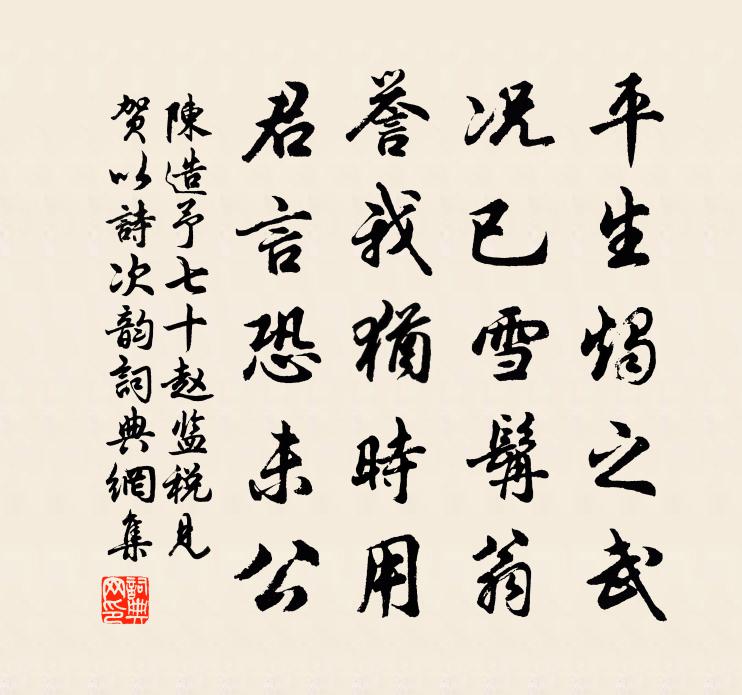 平生燭之武
况已雪鬢翁
譽我猶時用
君言恐未公
陳造予七十赵监税見
賀以詩次韵詞典網集
詞典網印